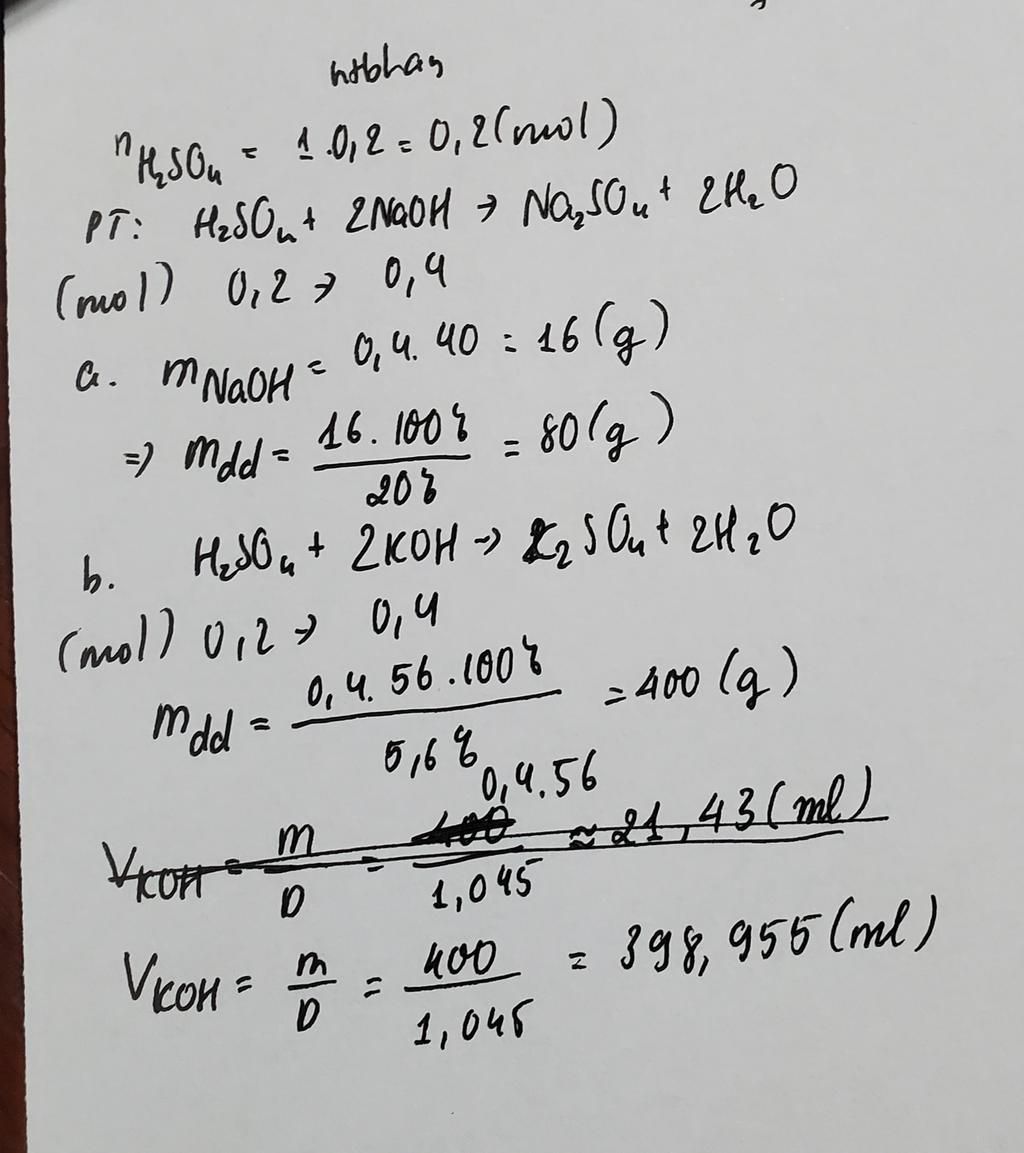 nthhan
nH₂SO₄ = 1.0,2 = 0,2(mol)
PT: H₂SO₄ + 2NaOH → Na₂SO₄ + 2H₂O
(mol) 0,2 → 0,4
a. mNaOH = 0,4.40 = 16(g)
=> mdd = 16.100% / 20% = 80(g)
b. H₂SO₄ + 2KOH → K₂SO₄ + 2H₂O
(mol) 0,2 → 0,4
mdd = 0,4.56.100% / 5,6% = 400(g)
VKOH = m/D = 0,4.56 / 1,045 ≈ 21,43(ml)
VKOH = m/D = 400 / 1,045 = 398,955(ml)